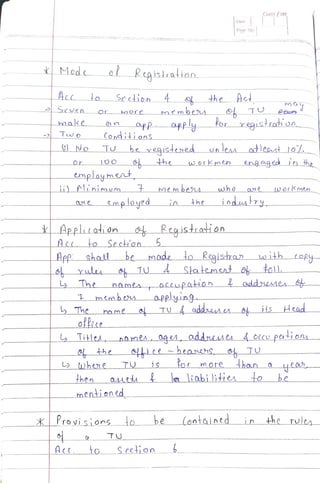 Class / Sem
Date
Page No.
* Mode of Registration
Acc to Section 4 of the Act
→ Seven or more members of TU may
make an app. apply for registration.
→ Two Conditions
i) No TU be registered unless atleast 10%
or 100 of the workmen engaged in the
employment.
ii) Minimum 7 members who are workmen
are employed in the industry.
* Application of Registration
Acc. to Section 5
App. shall be made to Registrar with copy
of rules of TU & Statement of foll.
↳ The names, occupation & addresses of
7 members applying.
↳ The name of TU & address of its Head
office
↳ Titles, names, ages, addresses & occupations
of the office-bearers, of TU
↳ Where TU is for more than a year,
then assets & liabilities to be
mentioned.
* Provisions to be contained in the rules
of TU
Acc. to Section 6.